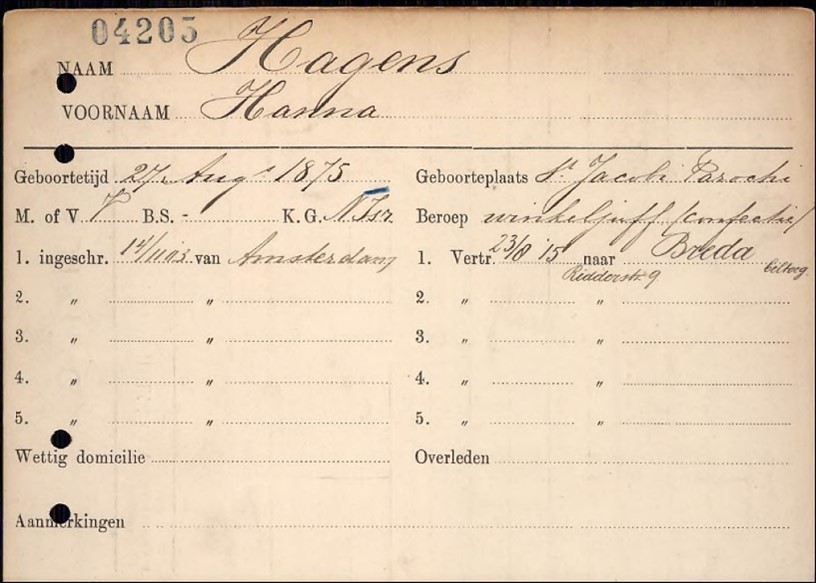 04205
NAAM Hagens
VOORNAAM Hanna
Geboortetijd 27 Aug^s 1875 Geboorteplaats S^t. Jacobi Parochi
M. of V. V B.S. - K.G. N Isr. Beroep winkeljuff (confectie)
1. ingeschr. 14/11 05 van Amsterdam 1. Vertr. 23/8 '15 naar Breda
Ridderstr. 9
2. " " 2. " "
3. " " 3. " "
4. " " 4. " "
5. " " 5. " "
Wettig domicilie Overleden
Aanmerkingen